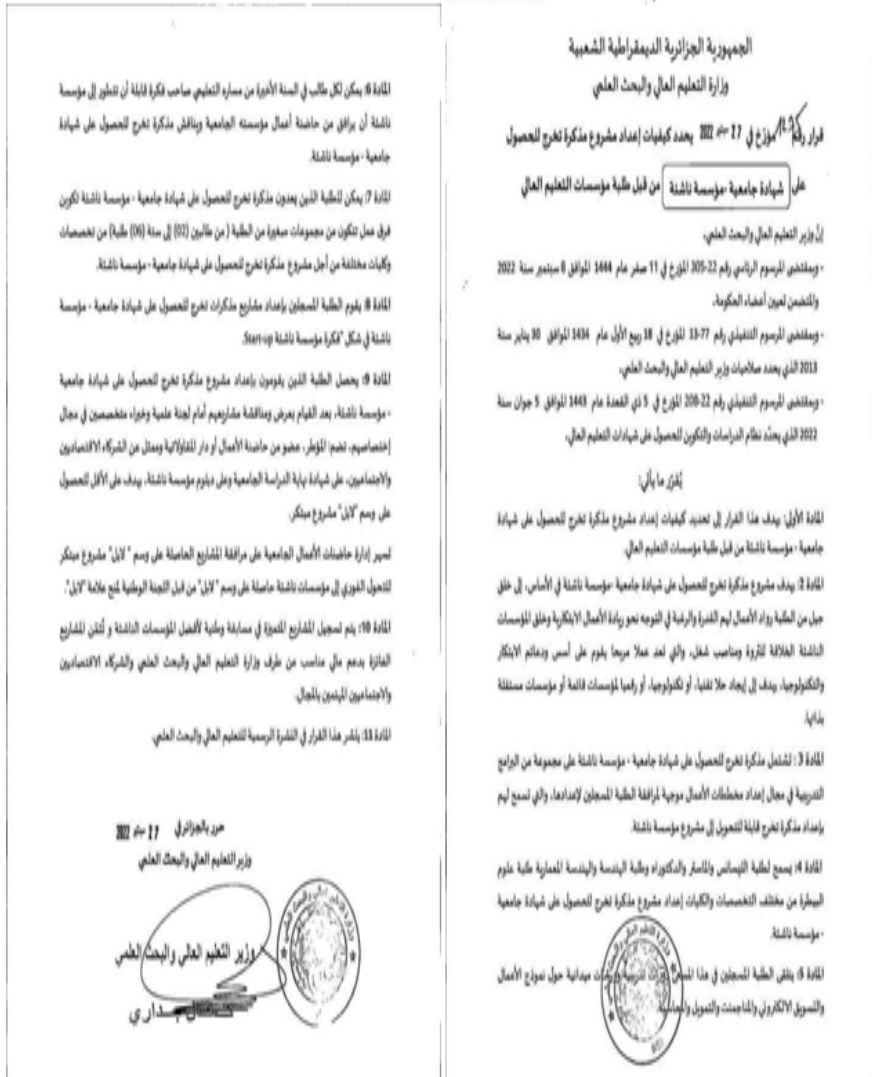 الجمهورية الجزائرية الديمقراطية الشعبية
وزارة التعليم العالي والبحث العلمي
قرار رقم مؤرخ في 27 2022 يحدد كيفيات إعداد مشروع مذكرة تخرج للحصول
على شهادة جامعية -مؤسسة ناشئة من قبل طلبة مؤسسات التعليم العالي
إنّ وزير التعليم العالي والبحث العلمي،
- وبمقتضى المرسوم الرئاسي رقم 22-305 المؤرخ في 11 صفر عام 1444 الموافق 8 سبتمبر سنة 2022
والمتضمن تعيين أعضاء الحكومة،
- وبمقتضى المرسوم التنفيذي رقم 77-13 المؤرخ في 18 ربيع الأول عام 1434 الموافق 30 يناير سنة
2013 الذي يحدد صلاحيات وزير التعليم العالي والبحث العلمي،
- وبمقتضى المرسوم التنفيذي رقم 22-208 المؤرخ في 5 ذي القعدة عام 1443 الموافق 5 جوان سنة
2022 الذي يحدّد نظام الدراسات والتكوين للحصول على شهادات التعليم العالي،
يُقرّر ما يأتي:
المادة الأولى: يهدف هذا القرار إلى تحديد كيفيات إعداد مشروع مذكرة تخرج للحصول على شهادة
جامعية - مؤسسة ناشئة من قبل طلبة مؤسسات التعليم العالي.
المادة 2: يهدف مشروع مذكرة تخرج للحصول على شهادة جامعية -مؤسسة ناشئة في الأساس، إلى خلق
جيل من الطلبة رواد الأعمال لهم القدرة والرغبة في التوجه نحو ريادة الأعمال الابتكارية وخلق المؤسسات
الناشئة الخلاقة للثروة ومناصب شغل، والتي تعد عملا مربحا يقوم على أسس ودعائم الابتكار
والتكنولوجيا، يهدف إلى إيجاد حلا تقنيا، أو تكنولوجيا، أو رقميا لمؤسسات قائمة أو مؤسسات مستقلة
بذاتها.
المادة 3 : تشتمل مذكرة تخرج للحصول على شهادة جامعية - مؤسسة ناشئة على مجموعة من البرامج
التدريبية في مجال إعداد مخططات الأعمال موجهة لمرافقة الطلبة المسجلين لإعدادها، والتي تسمح لهم
بإعداد مذكرة تخرج قابلة للتحويل إلى مشروع مؤسسة ناشئة.
المادة 4: يسمح لطلبة الليسانس والماستر والدكتوراه وطلبة الهندسة والهندسة المعمارية طلبة علوم
البيطرة من مختلف التخصصات والكليات إعداد مشروع مذكرة تخرج للحصول على شهادة جامعية
- مؤسسة ناشئة.
المادة 5: يتلقى الطلبة المسجلين في هذا تدريبية ميدانية حول نموذج الأعمال
والتسويق الالكتروني والمناجمنت والتمويل والمحاسبة.
المادة 6: يمكن لكل طالب في السنة الأخيرة من مساره التعليمي صاحب فكرة قابلة أن تتطور إلى مؤسسة
ناشئة أن يرافق من حاضنة أعمال مؤسسته الجامعية ويناقش مذكرة تخرج للحصول على شهادة
جامعية - مؤسسة ناشئة.
المادة 7: يمكن للطلبة الذين يعدون مذكرة تخرج للحصول على شهادة جامعية - مؤسسة ناشئة تكوين
فرق عمل تتكون من مجموعات صغيرة من الطلبة ( من طالبين (02) إلى ستة (06) طلبة) من تخصصات
وكليات مختلفة من أجل مشروع مذكرة تخرج للحصول على شهادة جامعية - مؤسسة ناشئة.
المادة 8: يقوم الطلبة المسجلين بإعداد مشاريع مذكرات تخرج للحصول على شهادة جامعية - مؤسسة
ناشئة في شكل "فكرة مؤسسة ناشئة Start-up.
المادة 9: يحصل الطلبة الذين يقومون بإعداد مشروع مذكرة تخرج للحصول على شهادة جامعية
- مؤسسة ناشئة، بعد القيام بعرض ومناقشة مشاريعهم أمام لجنة علمية وخبراء متخصصين في مجال
إختصاصهم، تضم: المؤطر، عضو من حاضنة الأعمال أو دار المقاولاتية وممثل عن الشركاء الاقتصاديين
والاجتماعيين، على شهادة نهاية الدراسة الجامعية وعلى دبلوم مؤسسة ناشئة، يهدف على الأقل للحصول
على وسم "لابل" مشروع مبتكر.
تسهر إدارة حاضنات الأعمال الجامعية على مرافقة المشاريع الحاصلة على وسم " لابل" مشروع مبتكر
للتحول الفوري إلى مؤسسات ناشئة حاصلة على وسم " لابل" من قبل اللجنة الوطنية لمنح علامة "لابل".
المادة 10: يتم تسجيل المشاريع المتميزة في مسابقة وطنية لأفضل المؤسسات الناشئة و تُثمّن المشاريع
الفائزة بدعم مالي مناسب من طرف وزارة التعليم العالي والبحث العلمي والشركاء الاقتصاديين
والاجتماعيين المهتمين بالمجال.
المادة 11: ينشر هذا القرار في النشرة الرسمية للتعليم العالي والبحث العلمي.
حرر بالجزائر في 27 2022
وزير التعليم العالي والبحث العلمي
وزير التعليم العالي والبحث العلمي
بداري